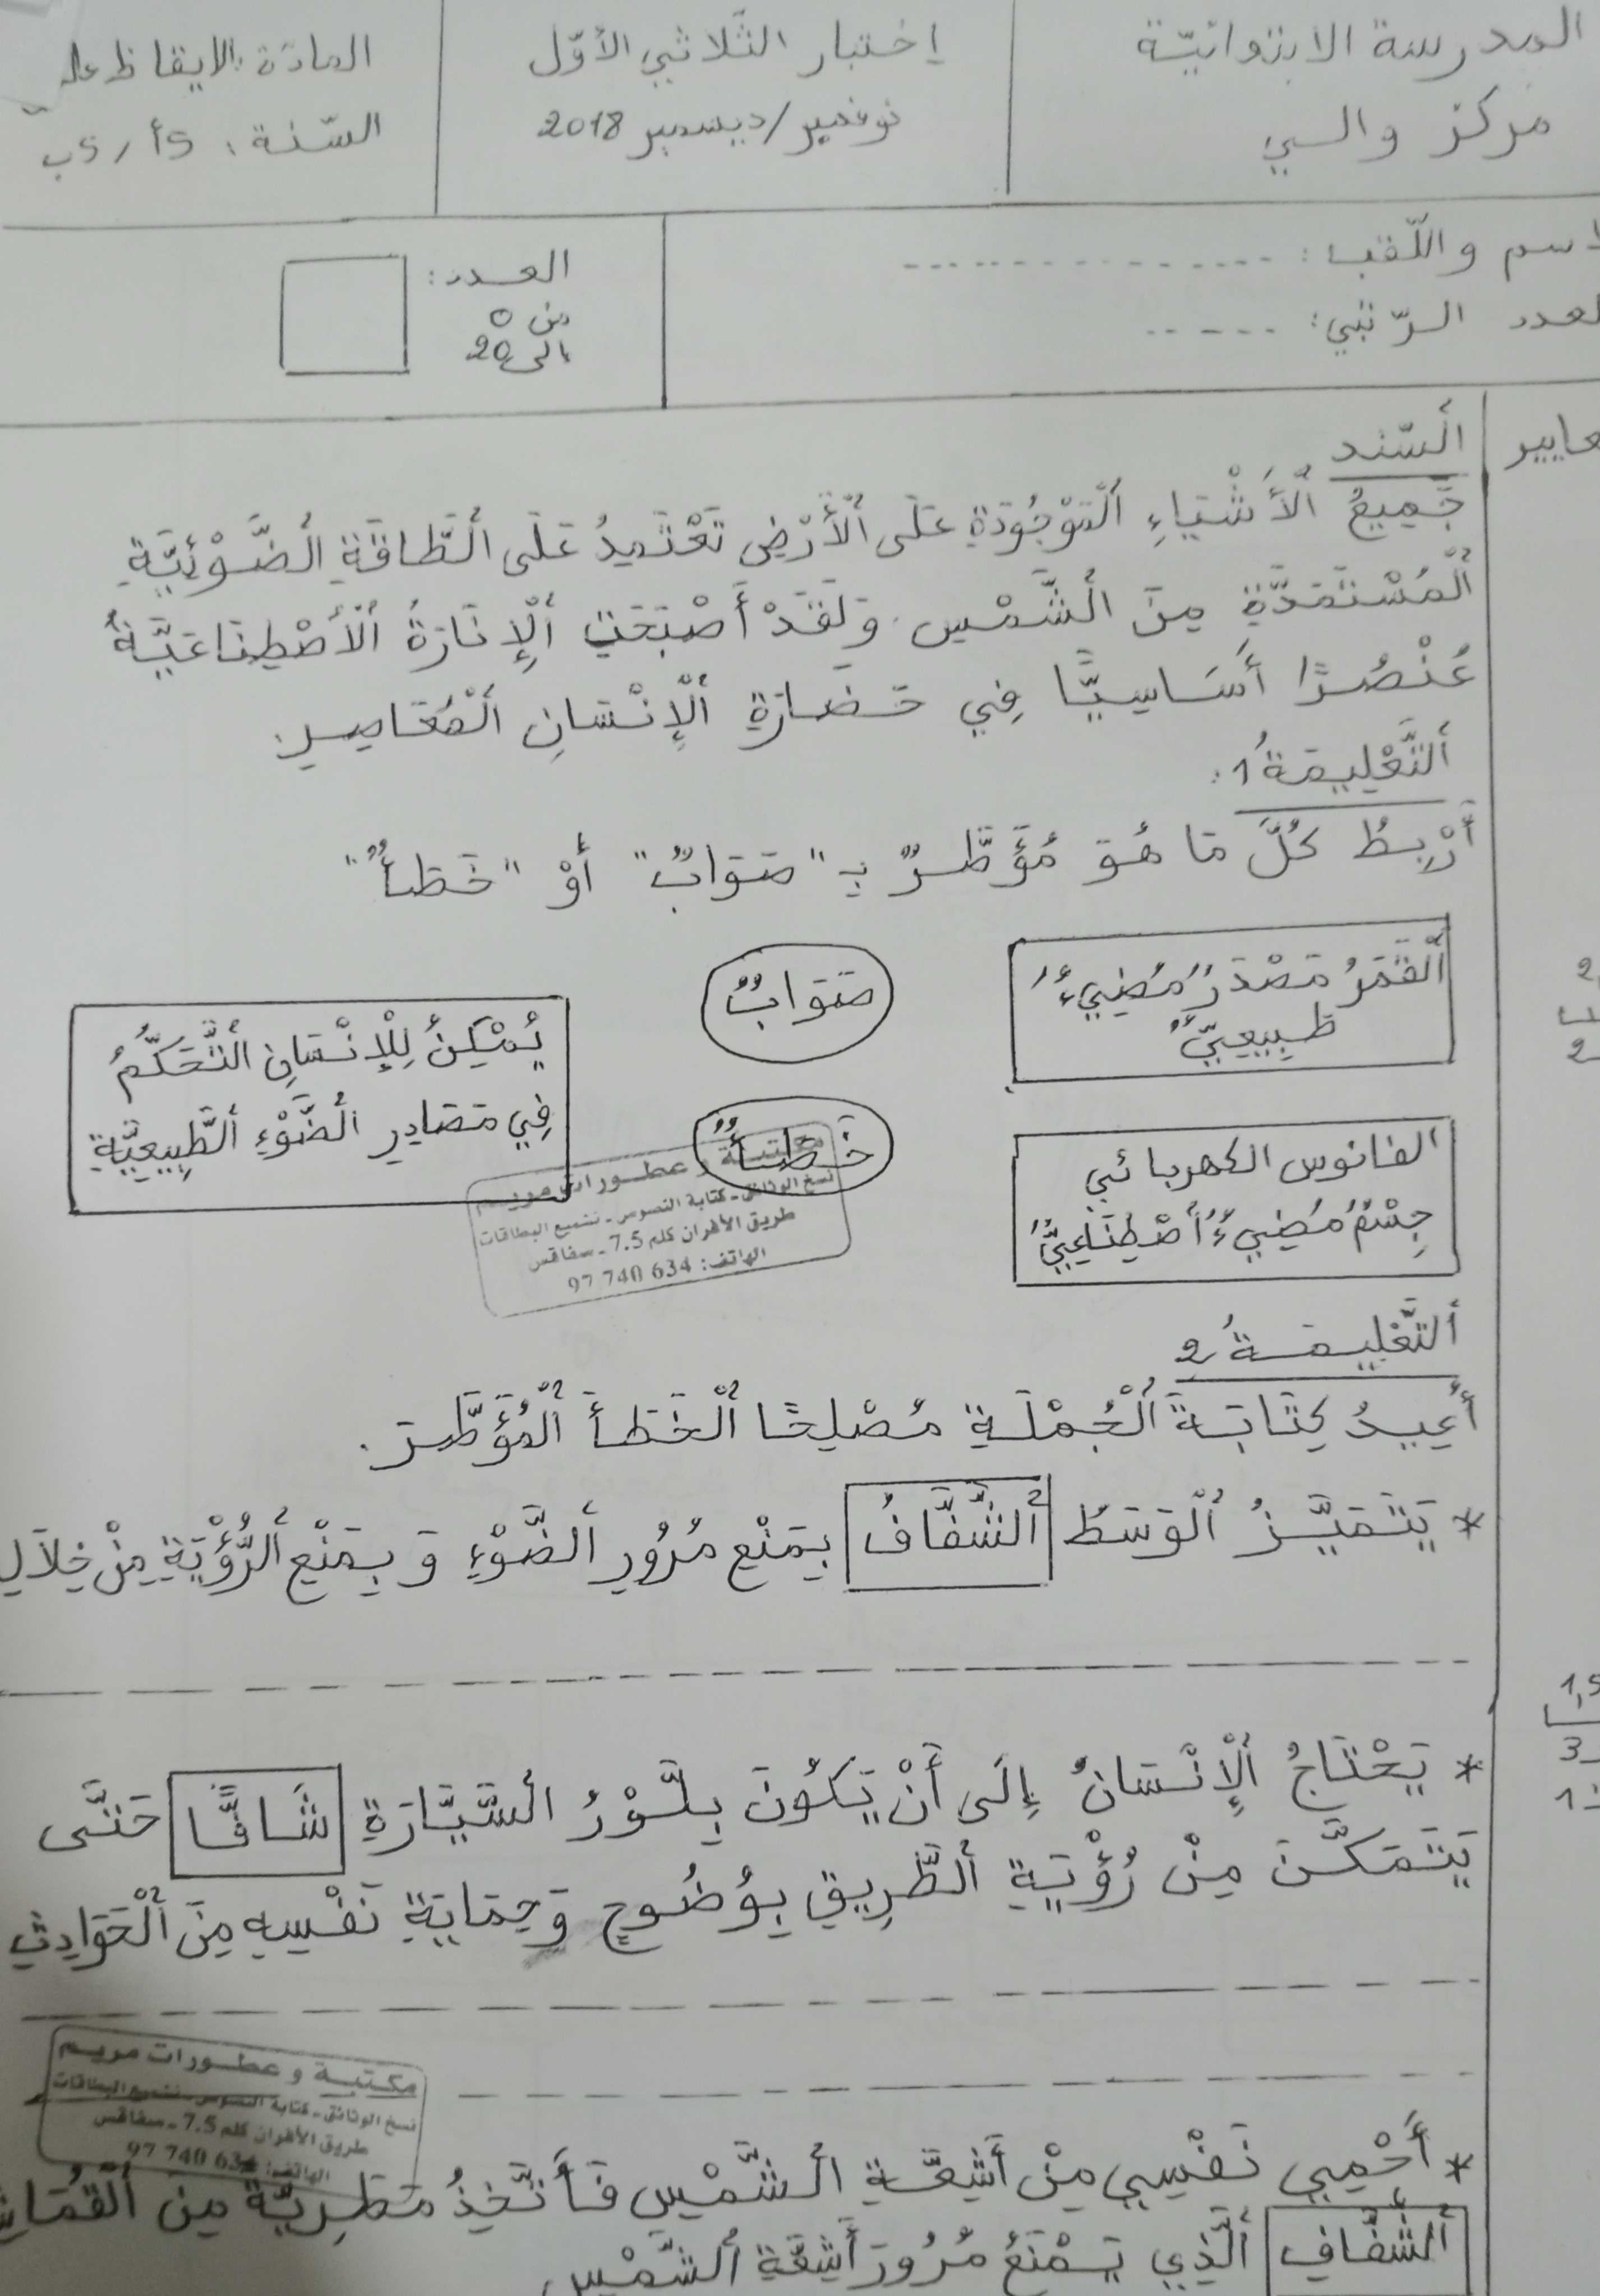 المدرسة الابتدائيّة
مركز والسي
إختبار الثّلاثي الأوّل
نوفمبر/ديسمبر 2018
المادّة: الايقاظ
السّنة: 5أ/5ب
واللّقب: ................
الرّتبي: ......
العدد:
من 0
الى 20
أَلسّند
جَمِيعُ اُلْأَشْيَاءِ اُلْمَوْجُودَةِ عَلَى اُلْأَرْضِ تَعْتَمِدُ عَلَى اُلطَّاقَةِ اُلضَّوْئِيَّةِ
اُلْمُسْتَمَدَّةِ مِنَ اُلشَّمْسِ. وَلَقَدْ أَصْبَحَتِ اُلْإِنَارَةُ اُلْأَصْطِنَاعِيَّةُ
عُنْصُرًا أَسَاسِيًّا فِي حَضَارَةِ اُلْإِنْسَانِ اُلْمُعَاصِرِ.
أَلتَّعْلِيمَةُ 1:
أَرْبِطُ كُلَّ مَا هُوَ مُؤَطَّرٌ بِـ "صَوَابٌ" أَوْ "خَطَأٌ"
أَلْقَمَرُ مَصْدَرٌ مُضِيءٌ
طَبِيعِيٌّ
صَوَابٌ
يُمْكِنُ لِلْإِنْسَانِ اُلتَّحَكُّمُ
فِي مَصَادِرِ اُلضَّوْءِ اُلطَّبِيعِيَّةِ
خَطَأٌ
الفانوس الكهربائي
جِسْمٌ مُضِيءٌ أَصْطِنَاعِيٌّ
مكتبة و عطورات مريم
نسخ الوثائق - كتابة النصوص - تشميع البطاقات
طريق الأفران كلم 7.5 - سفاقس
الهاتف: 97 740 634
أَلتَّعْلِيمَةُ 2
أُعِيدُ كِتَابَةَ اُلْجُمْلَةِ مُصْلِحًا اُلْخَطَأَ اُلْمُؤَطَّرَ.
* يَتَمَيَّزُ اُلْوَسَطُ اُلشَّفَّافُ بِمَنْعِ مُرُورِ اُلضَّوْءِ وَ بِمَنْعِ اُلرُّؤْيَةِ مِنْ
* يَحْتَاجُ اُلْإِنْسَانُ إِلَى أَنْ يَكُونَ بِلَّوْرُ اُلسَّيَّارَةِ شَافًّا حَتَّى
يَتَمَكَّنَ مِنْ رُؤْيَةِ اُلطَّرِيقِ بِوُضُوحٍ وَحِمَايَةِ نَفْسِهِ مِنَ اُلْحَوَادِثِ
مكتبة و عطورات مريم
نسخ الوثائق - كتابة النصوص - تشميع البطاقات
طريق الأفران كلم 7.5 - سفاقس
الهاتف: 97 740 634
* أَحْمِي نَفْسِي مِنْ أَشِعَّةِ اُلشَّمْسِ فَأَتَّخِذُ مَطَرِيَّةً مِنَ
اُلشَّفَّافِ اُلَّذِي يَمْنَعُ مُرُورَ أَشِعَّةِ اُلشَّمْسِ